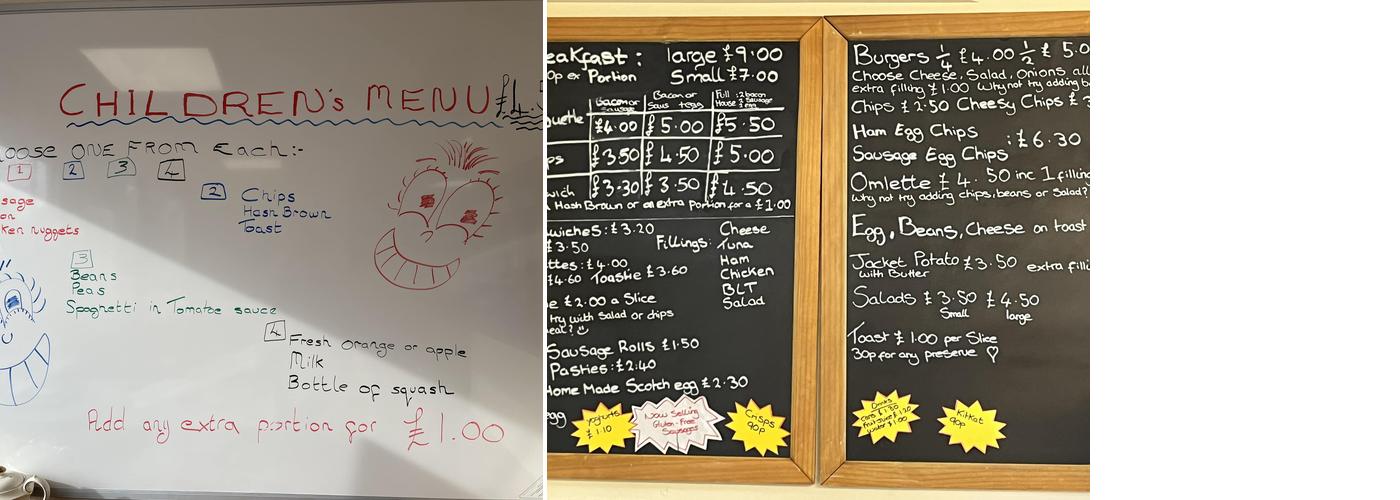 CHILDREN'S MENU
ONE FROM Each:-
1 2 3 4
2 Chips
Hash Brown
Toast
ken nuggets
3
Beans
Peas
Spaghetti in Tomatoe sauce
4 Fresh orange or apple
Milk
Bottle of squash
Add any extra portion for £1.00
large £9.00
Portion Small £7.00
Bacon or Sausage
Bacon or Saus + egg
Full House
£4.00 £5.00 £5.50
£3.50 £4.50 £5.00
£3.30 £3.50 £4.50
Hash Brown or an extra portion for a £1.00
£3.20
£3.50 Fillings:
Cheese
Tuna
Ham
Chicken
BLT
Salad
£4.00
£4.60 Toastie £3.60
£2.00 a Slice
try with Salad or chips
Sausage Rolls £1.50
Pasties: £2.40
Home Made Scotch egg £2.30
Yoghurts £1.10
Now Selling
Gluten-Free
Sausages
Crisps
90p
Burgers 1/4 £4.00 1/2 £ 5.0
Choose Cheese, Salad, Onions
extra filling £1.00 Why not try adding
Chips £2.50 Cheesy Chips £
Ham Egg Chips
: £6.30
Sausage Egg Chips
Omlette £4.50 inc 1 filling
Why not try adding chips, beans or Salad?
Egg, Beans, Cheese on toast
Jacket Potato £3.50 extra
with Butter
Salads £3.50 £4.50
Small large
Toast £1.00 per Slice
30p for any preserve
Drinks
KitKat
90p